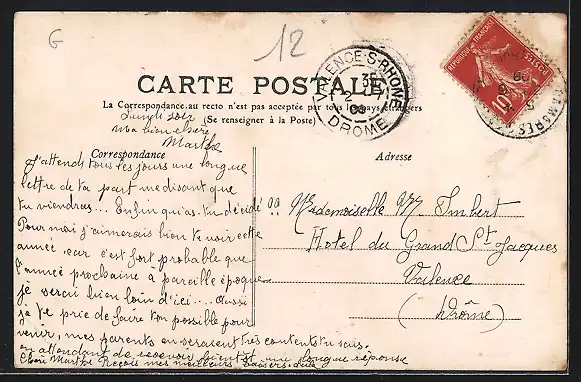 G
12
CARTE POSTALE
La Correspondance au recto n'est pas acceptée par tous les pays étrangers
(Se renseigner à la Poste)
VALENCE-S-RHONE
DROME
REPUBLIQUE FRANÇAISE
POSTES
10
Lundi soir
Ma bien chère
Marthe
Correspondance
J'attends tous les jours une longue
lettre de ta part me disant que
tu viendras... Enfin qu'as-tu décidé ??
Pour moi j'aimerais bien te voir cette
année car c'est fort probable que
l'année prochaine à pareille époque
je serai bien loin d'ici... aussi
je te prie de faire ton possible pour
venir, mes parents en seraient très contents tu sais.
en attendant de recevoir bientôt une longue réponse
Chère Marthe Reçois mes meilleurs baisers
Adresse
Mademoiselle M Imbert
Hotel du Grand St Jacques
Valence
(Drôme)